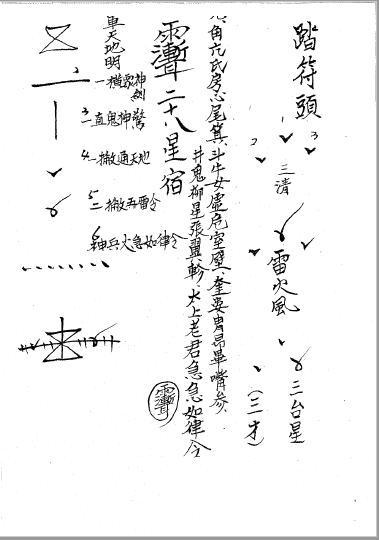 踏符頭
2 3
三清
雷火風
三台星
(三才)
角亢氏房心尾箕斗牛女虛危室壁奎婁胃昴畢嘴參
井鬼柳星張翼軫 太上老君急急如律令
二十八星宿
車天地明
2
一橫眾神
3 一直鬼神驚
4 一撇通天地
5 二撇五雷令
6 神兵火急如律令